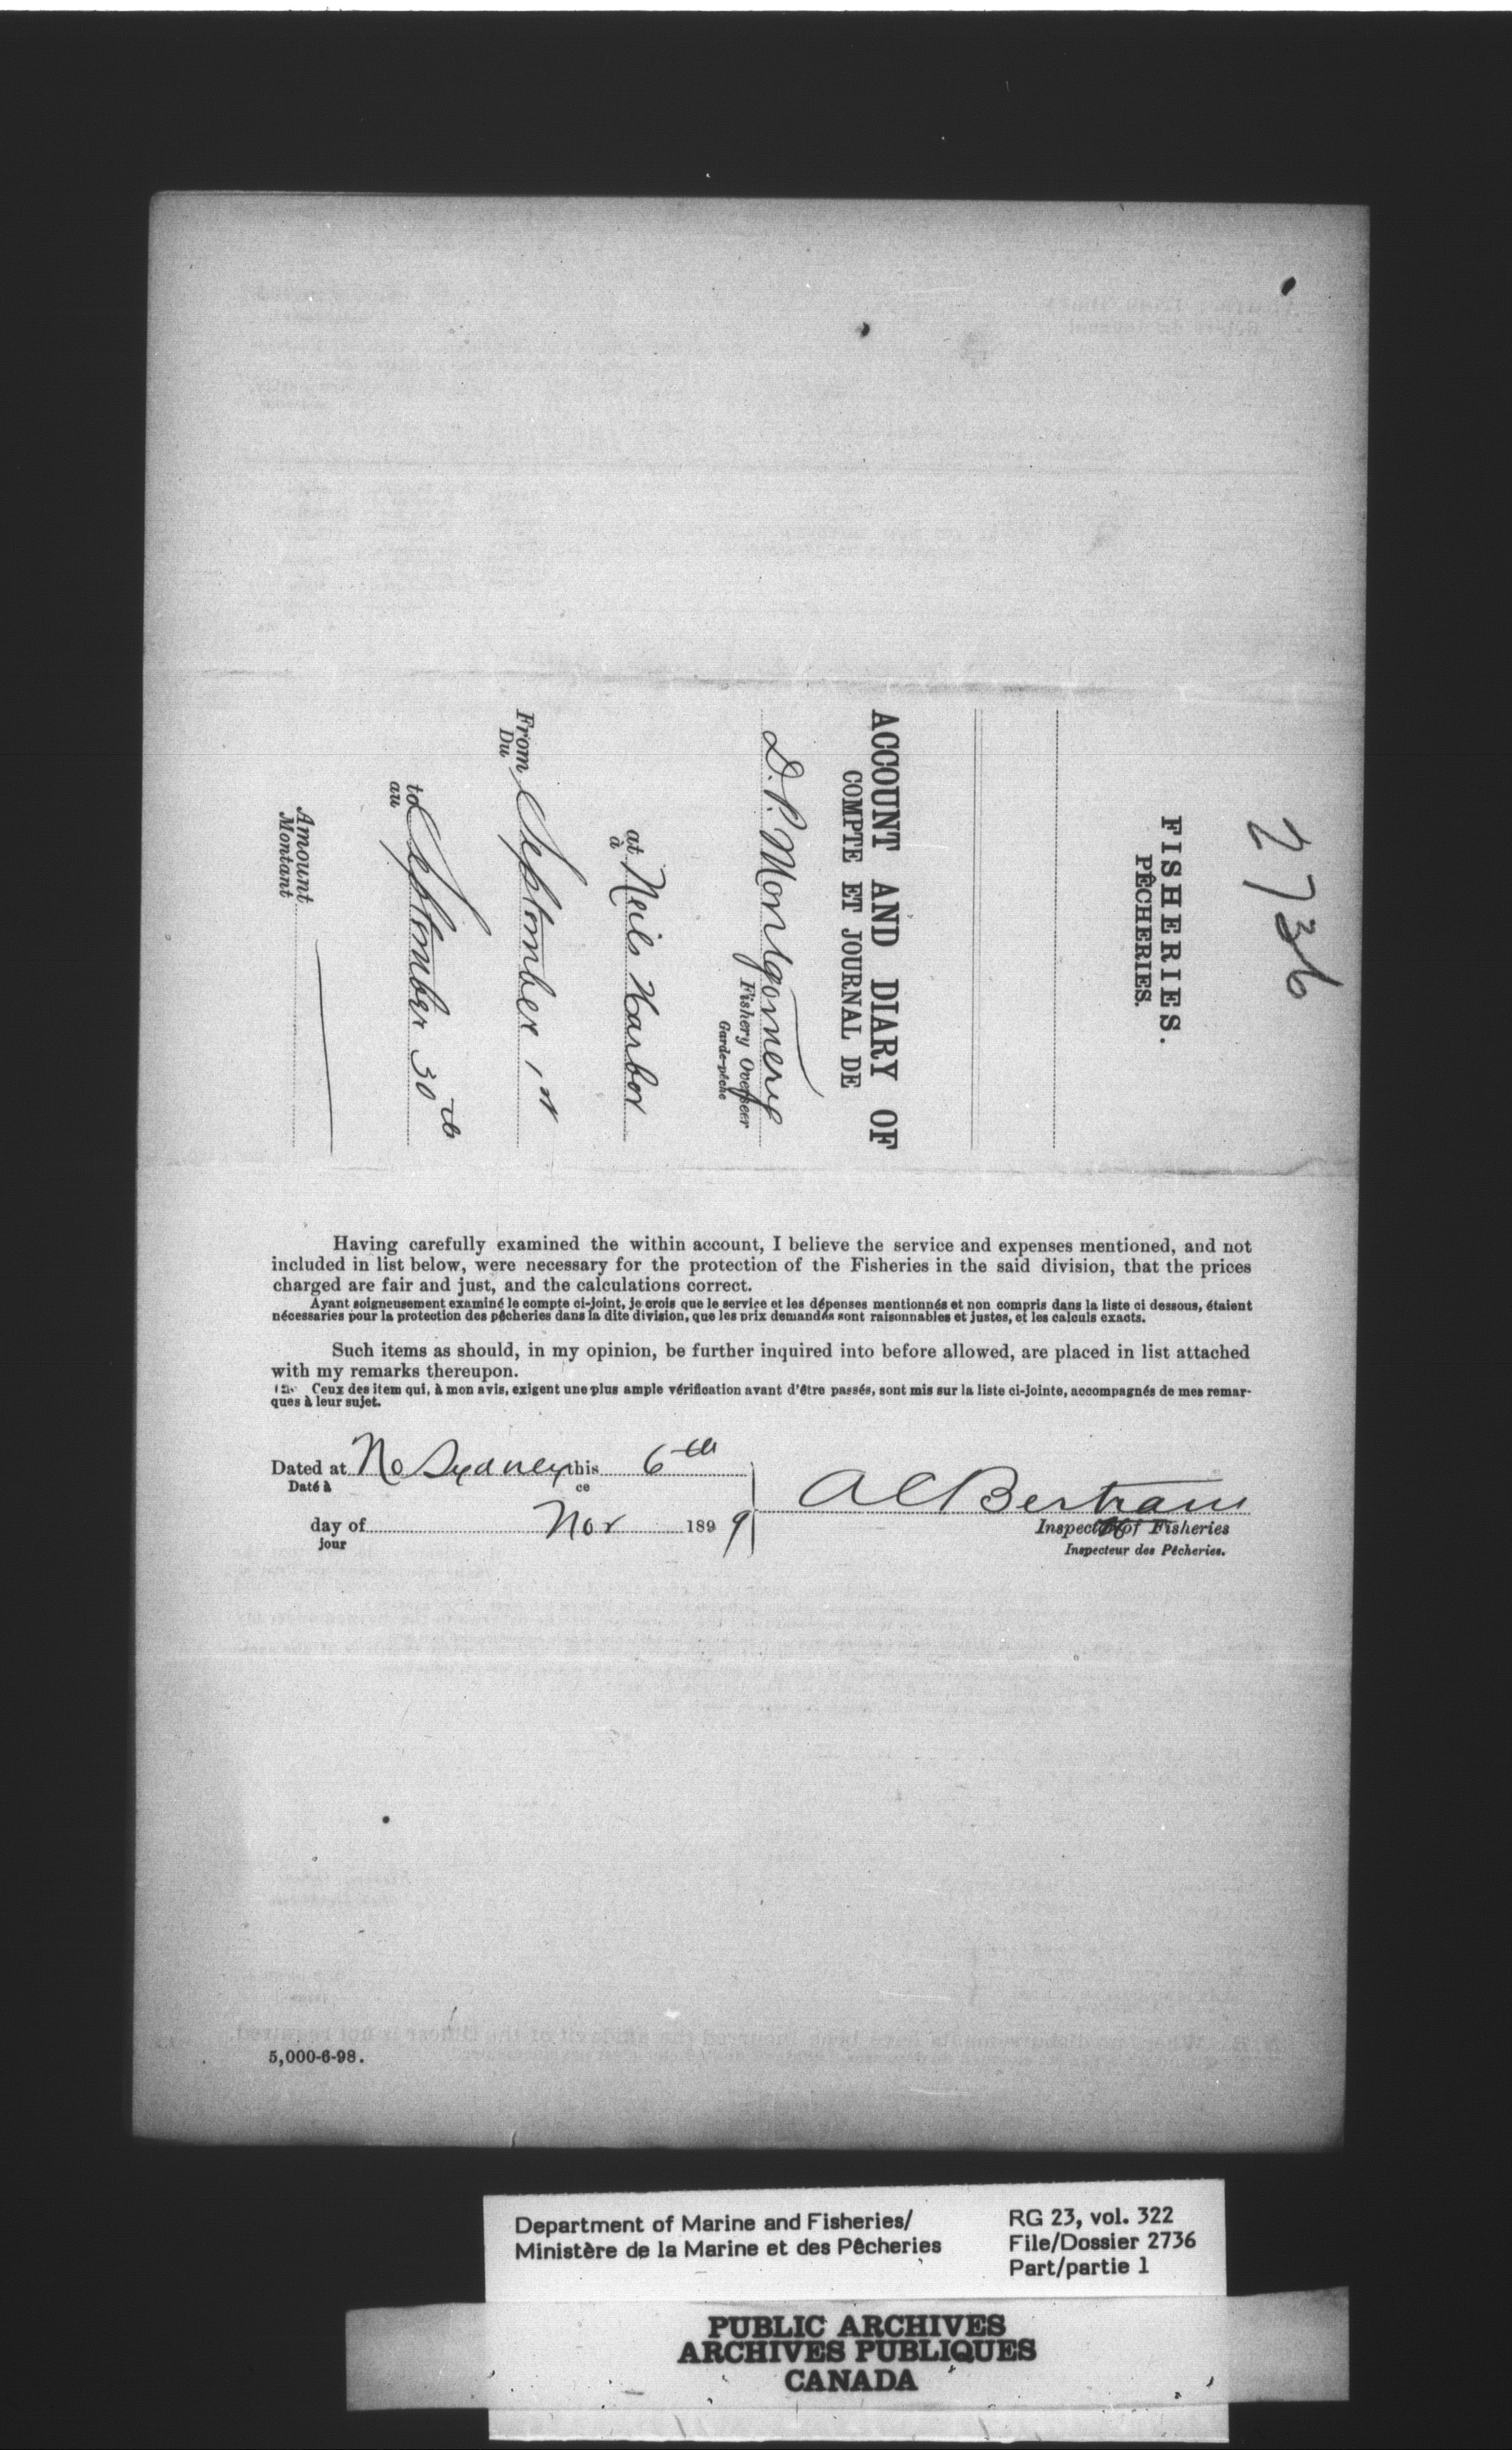 2736
FISHERIES.
PÊCHERIES.
ACCOUNT AND DIARY OF
COMPTE ET JOURNAL DE
D. P. Montgomery
Fishery Overseer
Garde-pêche
at Neils Harbor
à
From September 1st
Du
to September 30th
au
Amount
Montant
Having carefully examined the within account, I believe the service and expenses mentioned, and not
included in list below, were necessary for the protection of the Fisheries in the said division, that the prices
charged are fair and just, and the calculations correct.
Ayant soigneusement examiné le compte ci-joint, je crois que le service et les dépenses mentionnés et non compris dans la liste ci dessous, étaient
nécessaries pour la protection des pêcheries dans la dite division, que les prix demandés sont raisonnables et justes, et les calculs exacts.
Such items as should, in my opinion, be further inquired into before allowed, are placed in list attached
with my remarks thereupon.
Ceux des item qui, à mon avis, exigent une plus ample vérification avant d'être passés, sont mis sur la liste ci-jointe, accompagnés de mes remar-
ques à leur sujet.
Dated at No Sydney this 6th
Daté à ce
day of Nov 1899
jour
A C Bertram
Inspector of Fisheries
Inspecteur des Pêcheries.
5,000-6-98.
Department of Marine and Fisheries/
Ministère de la Marine et des Pêcheries
RG 23, vol. 322
File/Dossier 2736
Part/partie 1
PUBLIC ARCHIVES
ARCHIVES PUBLIQUES
CANADA